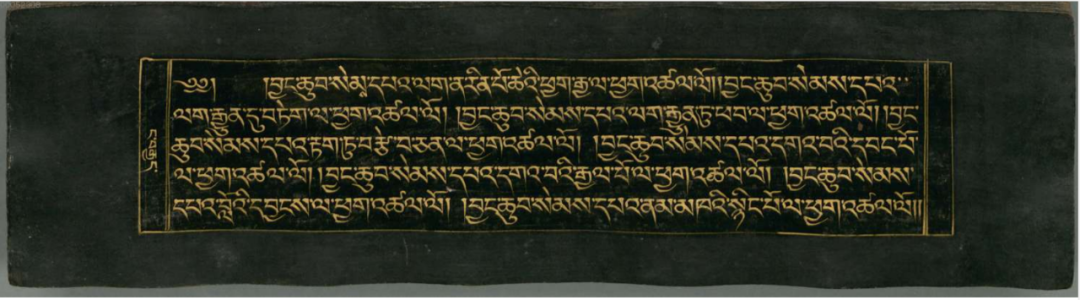 ༄༅། །བྱང་ཆུབ་སེམྶ་དཔའ་ལག་ན་རིན་པོ་ཆེའི་ཕྱག་རྒྱ་ལ་ཕྱག་འཚལ་ལོ། །བྱང་ཆུབ་སེམས་དཔའ་
ལག་རྒྱུན་དུ་བཏེག་ལ་ཕྱག་འཚལ་ལོ། །བྱང་ཆུབ་སེམས་དཔའ་ལག་རྒྱུན་ཏུ་ཕབ་ལ་ཕྱག་འཚལ་ལོ། །བྱང་
ཆུབ་སེམས་དཔའ་རྟག་ཏུ་བརྩེ་བ་ཅན་ལ་ཕྱག་འཚལ་ལོ། །བྱང་ཆུབ་སེམས་དཔའ་དགའ་བའི་དབང་པོ་
ལ་ཕྱག་འཚལ་ལོ། །བྱང་ཆུབ་སེམས་དཔའ་དགའ་བའི་རྒྱལ་པོ་ལ་ཕྱག་འཚལ་ལོ། །བྱང་ཆུབ་སེམས་
དཔའ་བློའི་དབྱངས་ལ་ཕྱག་འཚལ་ལོ། །བྱང་ཆུབ་སེམས་དཔའ་ནམ་མཁའི་སྙིང་པོ་ལ་ཕྱག་འཚལ་ལོ།།